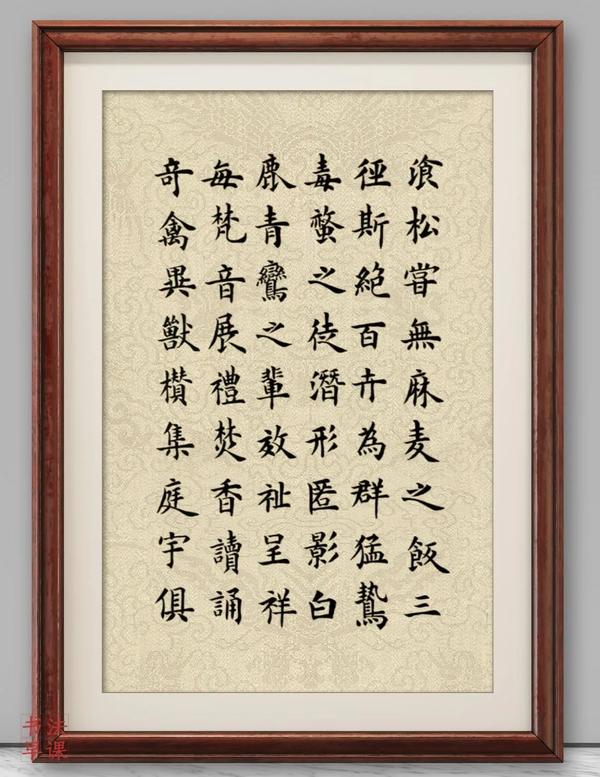 飡松嘗無麻麦之飯三
徑斯絕百卉為群猛鷙
毒螫之徒潛形匿影白
鹿青鸞之輩效祉呈祥
每梵音展禮焚香讀誦
奇禽異獸欑集庭宇俱
书法
早课